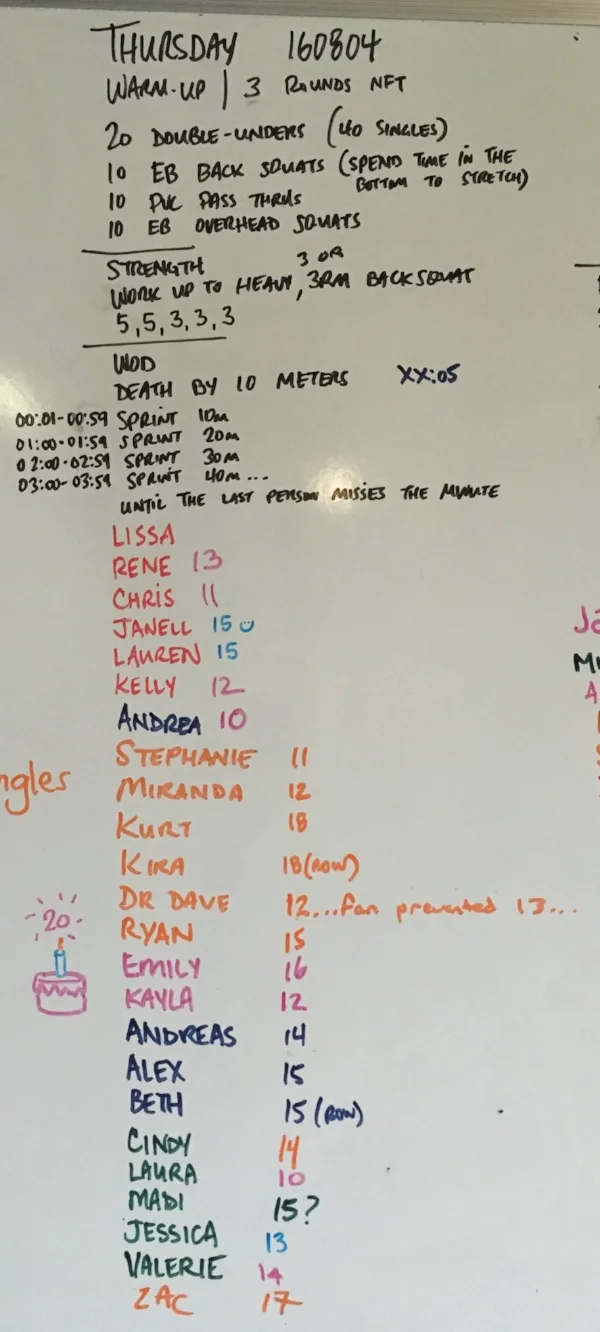 THURSDAY 160804
WARM-UP | 3 ROUNDS NFT
20 DOUBLE-UNDERS (40 SINGLES)
10 EB BACK SQUATS (SPEND TIME IN THE
BOTTOM TO STRETCH)
10 PVC PASS THRUS
10 EB OVERHEAD SQUATS
STRENGTH
3 OR
WORK UP TO HEAVY, 3RM BACKSQUAT
5, 5, 3, 3, 3
WOD
DEATH BY 10 METERS XX:05
00:01-00:59 SPRINT 10M
01:00-01:59 SPRINT 20M
02:00-02:59 SPRINT 30M
03:00-03:59 SPRINT 40M...
UNTIL THE LAST PERSON MISSES THE MINUTE
LISSA
RENE 13
CHRIS 11
JANELL 15
LAUREN 15
KELLY 12
ANDREA 10
STEPHANIE 11
ngles
MIRANDA 12
KURT 18
KIRA 18 (ROW)
DR DAVE 12...fan prevented 13...
20
RYAN 15
EMILY 16
KAYLA 12
ANDREAS 14
ALEX 15
BETH 15 (ROW)
CINDY 14
LAURA 10
MADI 15?
JESSICA 13
VALERIE 14
ZAC 17